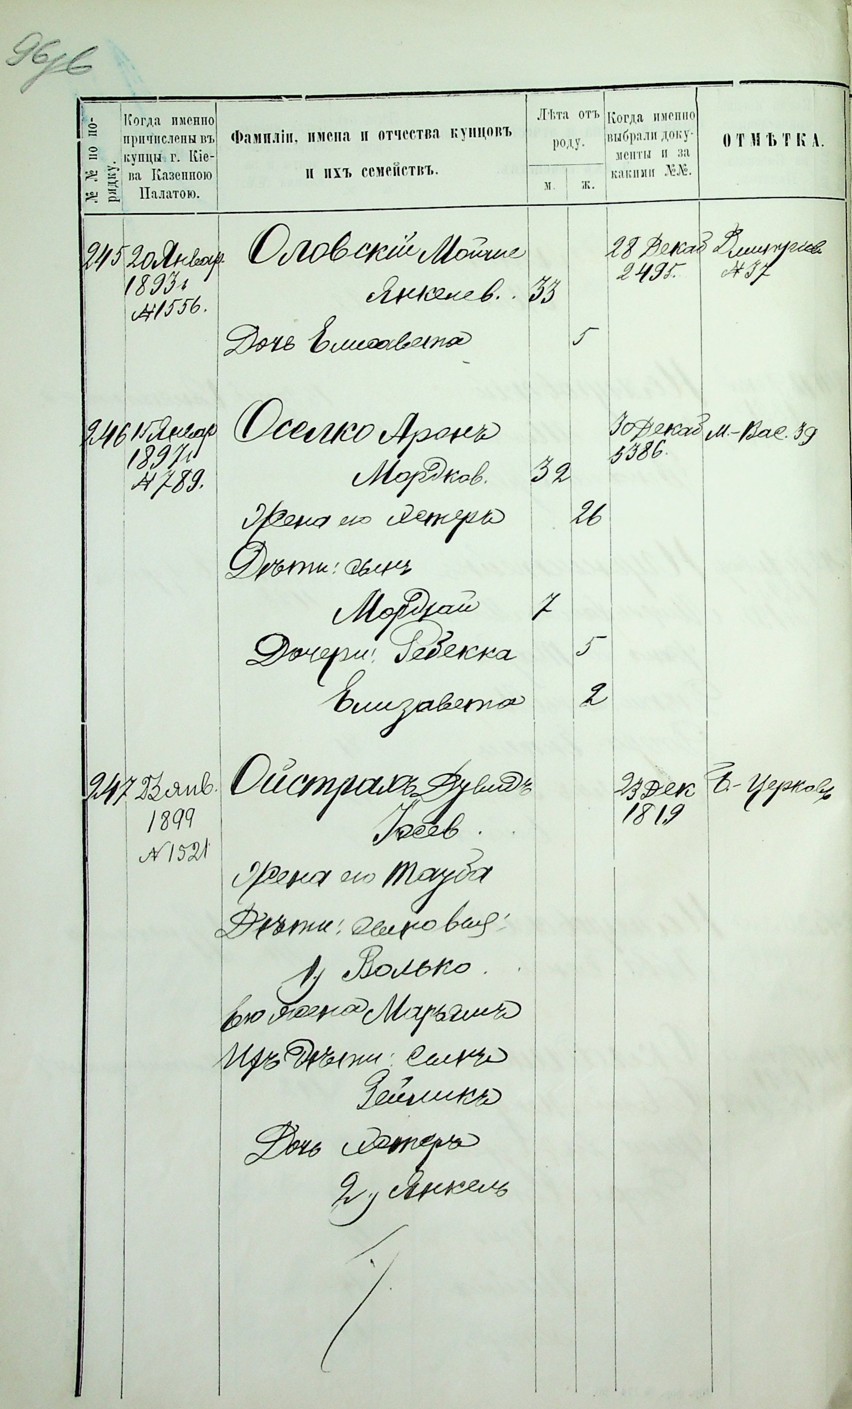 №№ по по-
рядку.
Когда именно
причислены въ
купцы г. Кіе-
ва Казенною
Палатою.
Фамиліи, имена и отчества купцовъ
и ихъ семействъ.
Лѣта отъ
роду.
м.
ж.
Когда именно
выбрали доку-
менты и за
какими №№.
ОТМѢТКА.
245 20 Январ Оловскій Мойше 28 Декаб
1893 г Янкелев. 33 2495. №37
№1556.
Дочь Елисавета 5
246 15 Январ Оселко Аронъ 30 Декаб М.-Вас. 39
1897 г Мордков. 32 5386.
№789.
Жена его Эстеръ 26
Дѣти: сынъ
Мордхай 7
Дочери: Ребекка 5
Елизавета 2
247 23 янв. Ойстрахъ Дувидъ 23 Дек Б.-Церковь
1899 Іосев. 1819
№1521
Жена его Тауба
Дѣти: сыновья:
1) Волько.
Его жена Марьямъ
Ихъ Дѣти: сынъ
Зейликъ
Дочь Эстеръ
2) Янкель